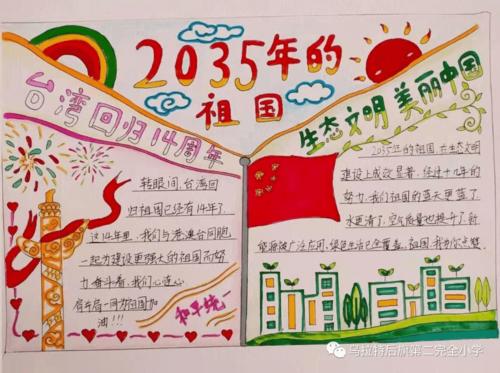 2035年的
祖国
台湾回归14周年
生态文明 美丽中国
转眼间,台湾回
归祖国已经有14年了,
这14年里,我们与港澳台同胞
一起为建设更强大的祖国而努
力奋斗着,我们心连心
肩并肩一同为祖国加
油!!!
和平统一
2035年的祖国,在生态文明
建设上成效显著,经过十几年的
努力,我们祖国的蓝天更蓝了
水更清了,空气质量也提升了,新
能源被广泛应用,绿色生活已全覆盖。祖国,我为你点赞
乌拉特后旗第二完全小学